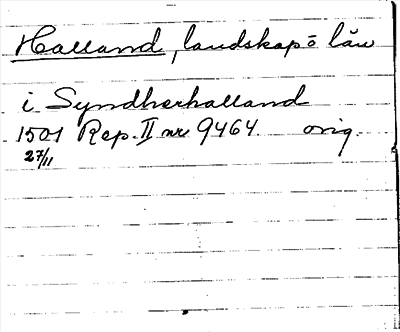 Halland, landskap o län
i Syndherhalland
1501 Rep. II nr 9464. orig.
27/11